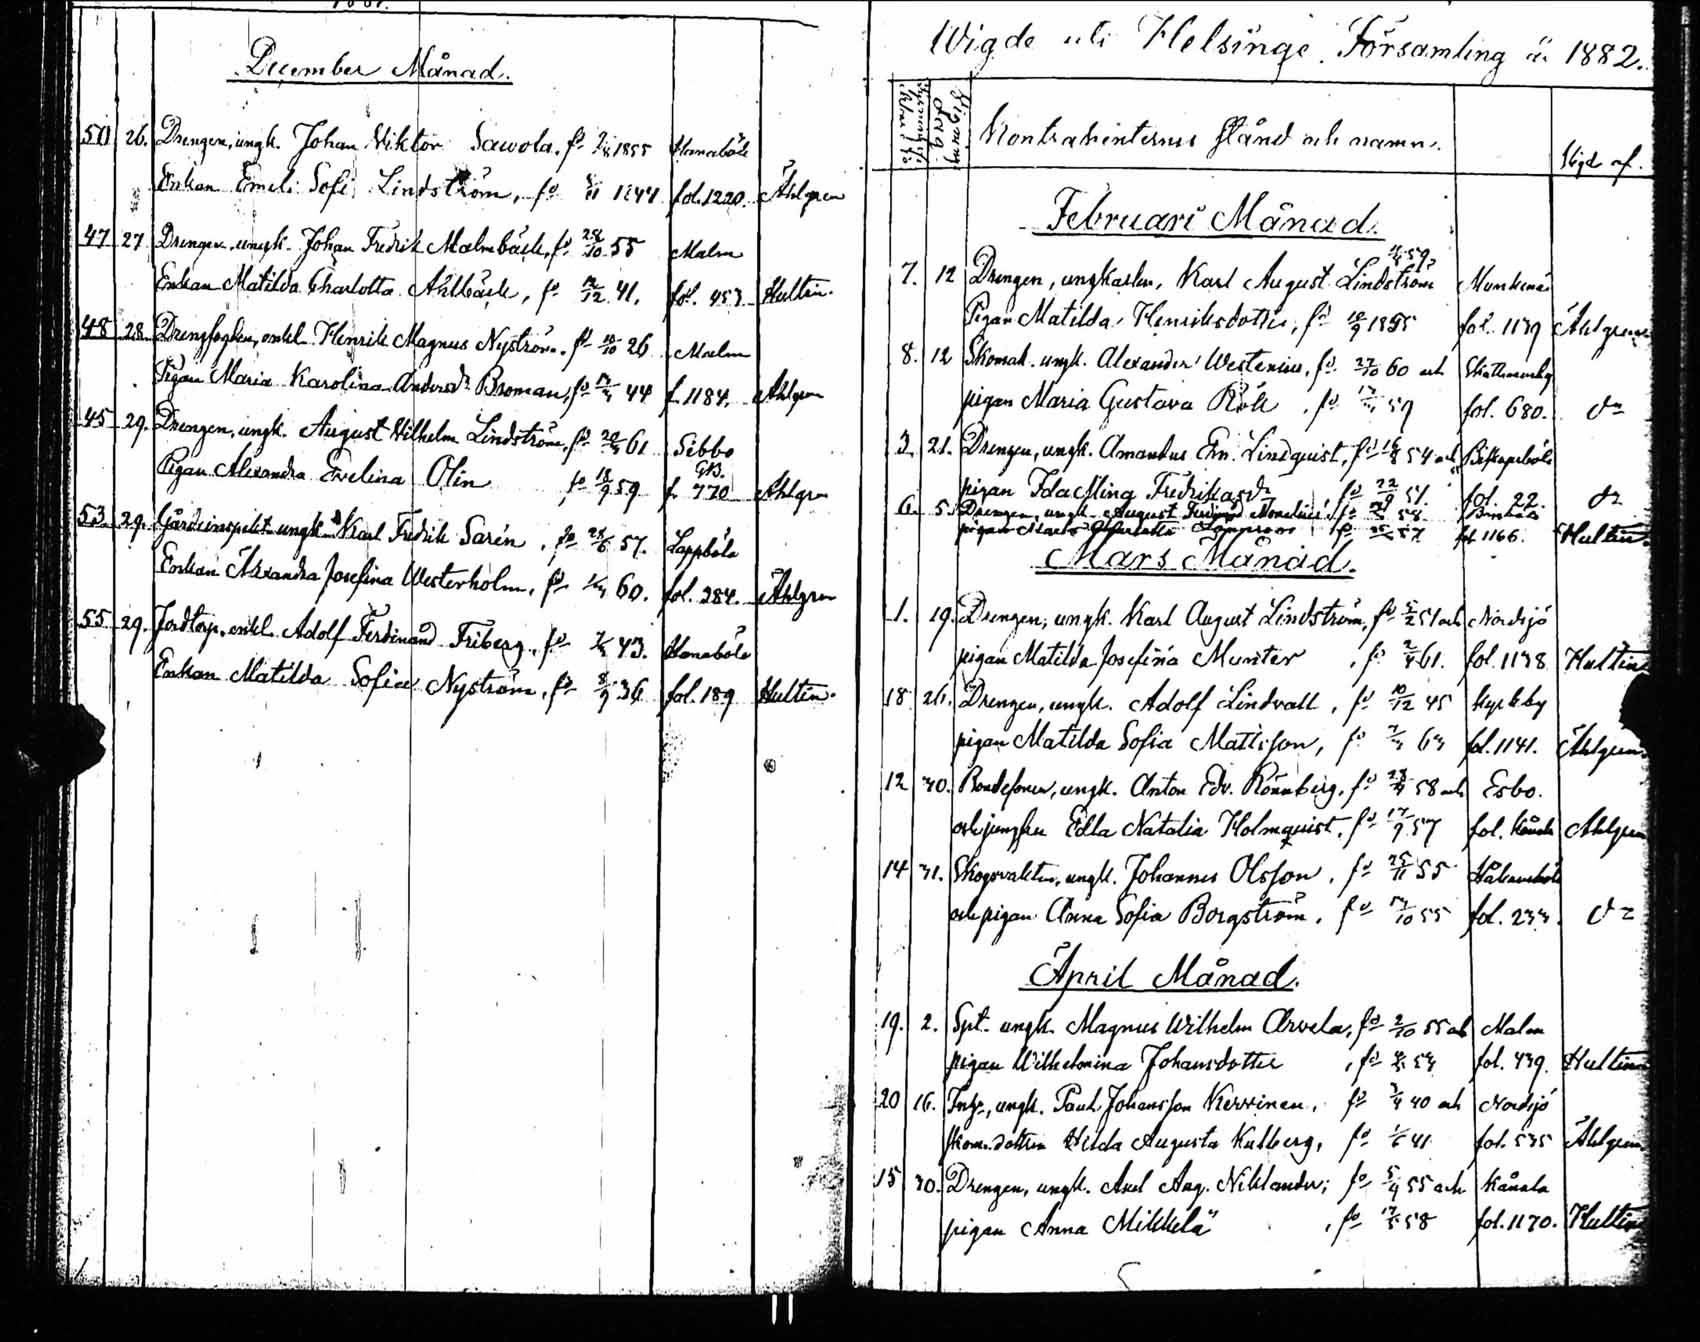 December Månad.
50 26. Drengen, ungk. Johan Viktor Sawola, fd 1855 Hanaböle
Enkan Emeli Sofi Lindström, fd 1844 fol. 1220. Åhlgren
47 27 Drengen, ungk. Johan Fredrik Malmbäck, fd 28/10 55 Malm
Enkan Matilda Charlotta Ahlbäck, fd 12/12 41, fol. 453 Hultin.
48 28. Drengfogden, enkl. Henrik Magnus Nyström, fd 10/10 26 Malm
Pigan Maria Karolina Andersdr Broman, fd 44 f. 1184. Åhlgren
45 29. Drengen, ungk. August Wilhelm Lindström, fd 61 Sibbo
Pigan Alexandra Evelina Olin fd 18/9 59 GB. f. 770 Ahlgren
53. 29. Gårdsinspekt. ungk. Karl Fredrik Sarén, fd 28/6 57. Lappböle
Enkan Alexandra Josefina Westerholm, fd 60. fol. 284. Åhlgren
55 29. Jordtorp. enkl. Adolf Ferdinand Friberg, fd 43. Hanaböle
Enkan Matilda Sofia Nyström, fd 8/9 36 fol. 189 Hultin.
Wigde uti Helsinge Församling år 1882.
Vigning Dag. Kontrahenternes stånd och namn. Vigd af.
Februari Månad.
59
7. 12 Drengen, ungkarlen, Karl August Lindström Munkenäs
Pigan Matilda Henriksdotter, fd 18/9 1855 fol. 1139 Åhlgren
8. 12 Skomak. ungk. Alexander Westenius, fd 27/10 60 och Skattmansby
pigan Maria Gustava Röh, fd 59 fol. 680. do
3 21. Drengen, ungk. Amandus Em. Lindquist, fd 54 och Biskopsböle
pigan Ida Mina Fredriksdr fd 22/9 51. fol. 22. do
6. 5. Drengen, ungk. August 58
pigan fd 57 fol. 1166. Hultin.
Mars Månad.
1. 19. Drengen, ungk. Karl August Lindström, fd 51 och Nordsjö
pigan Matilda Josefina Munter, fd 2/4 61. fol. 1138 Hultin
18 26. Drengen, ungk. Adolf Lindvall, fd 10/12 45 Kyrkby
pigan Matilda Sofia Mattsson, fd 63 fol. 1141. Åhlgren
12 30. Bondesonen, ungk. Anton Edv. Rönnberg, fd 58 och Esbo.
och jungfru Edla Natalia Holmquist, fd 17/9 57 fol. Kånala Ahlgren
14 31. Skogsvakten, ungk. Johannes Olsson, fd 25/11 55 Håkansböle
och pigan Anna Sofia Borgström, fd 13/10 55 fol. 233. do
April Månad.
19. 2. Spt. ungk. Magnus Wilhelm Arvela, fd 2/10 55 och Malm
pigan Wilhelmina Johansdotter, fd 53 fol. 439. Hultin
20 16. ungk. Paul Johansson Kervinen, fd 3/4 40 och Nordsjö
skom. dottern Hilda Augusta Kulberg, fd 1/6 41 fol. 535 Åhlgren
15 30. Drengen, ungk. Axel Aug. Niklander, fd 5/9 55 och Kånala
pigan Anna Mikkelä, fd 17/5 58 fol. 1170. Hultin
11